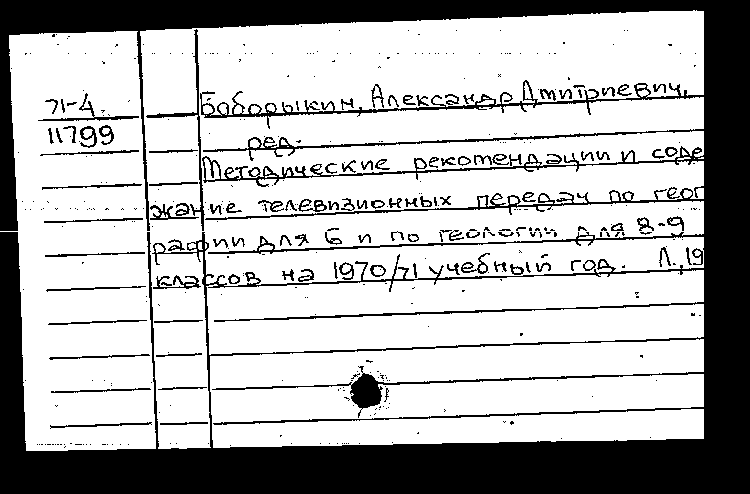 71-4.
11799
Боборыкин, Александр Дмитриевич,
ред.
Методические рекомендации и соде
жание телевизионных передач по геог
рафии для 6 и по геологии для 8-9
классов на 1970/71 учебный год. Л., 19